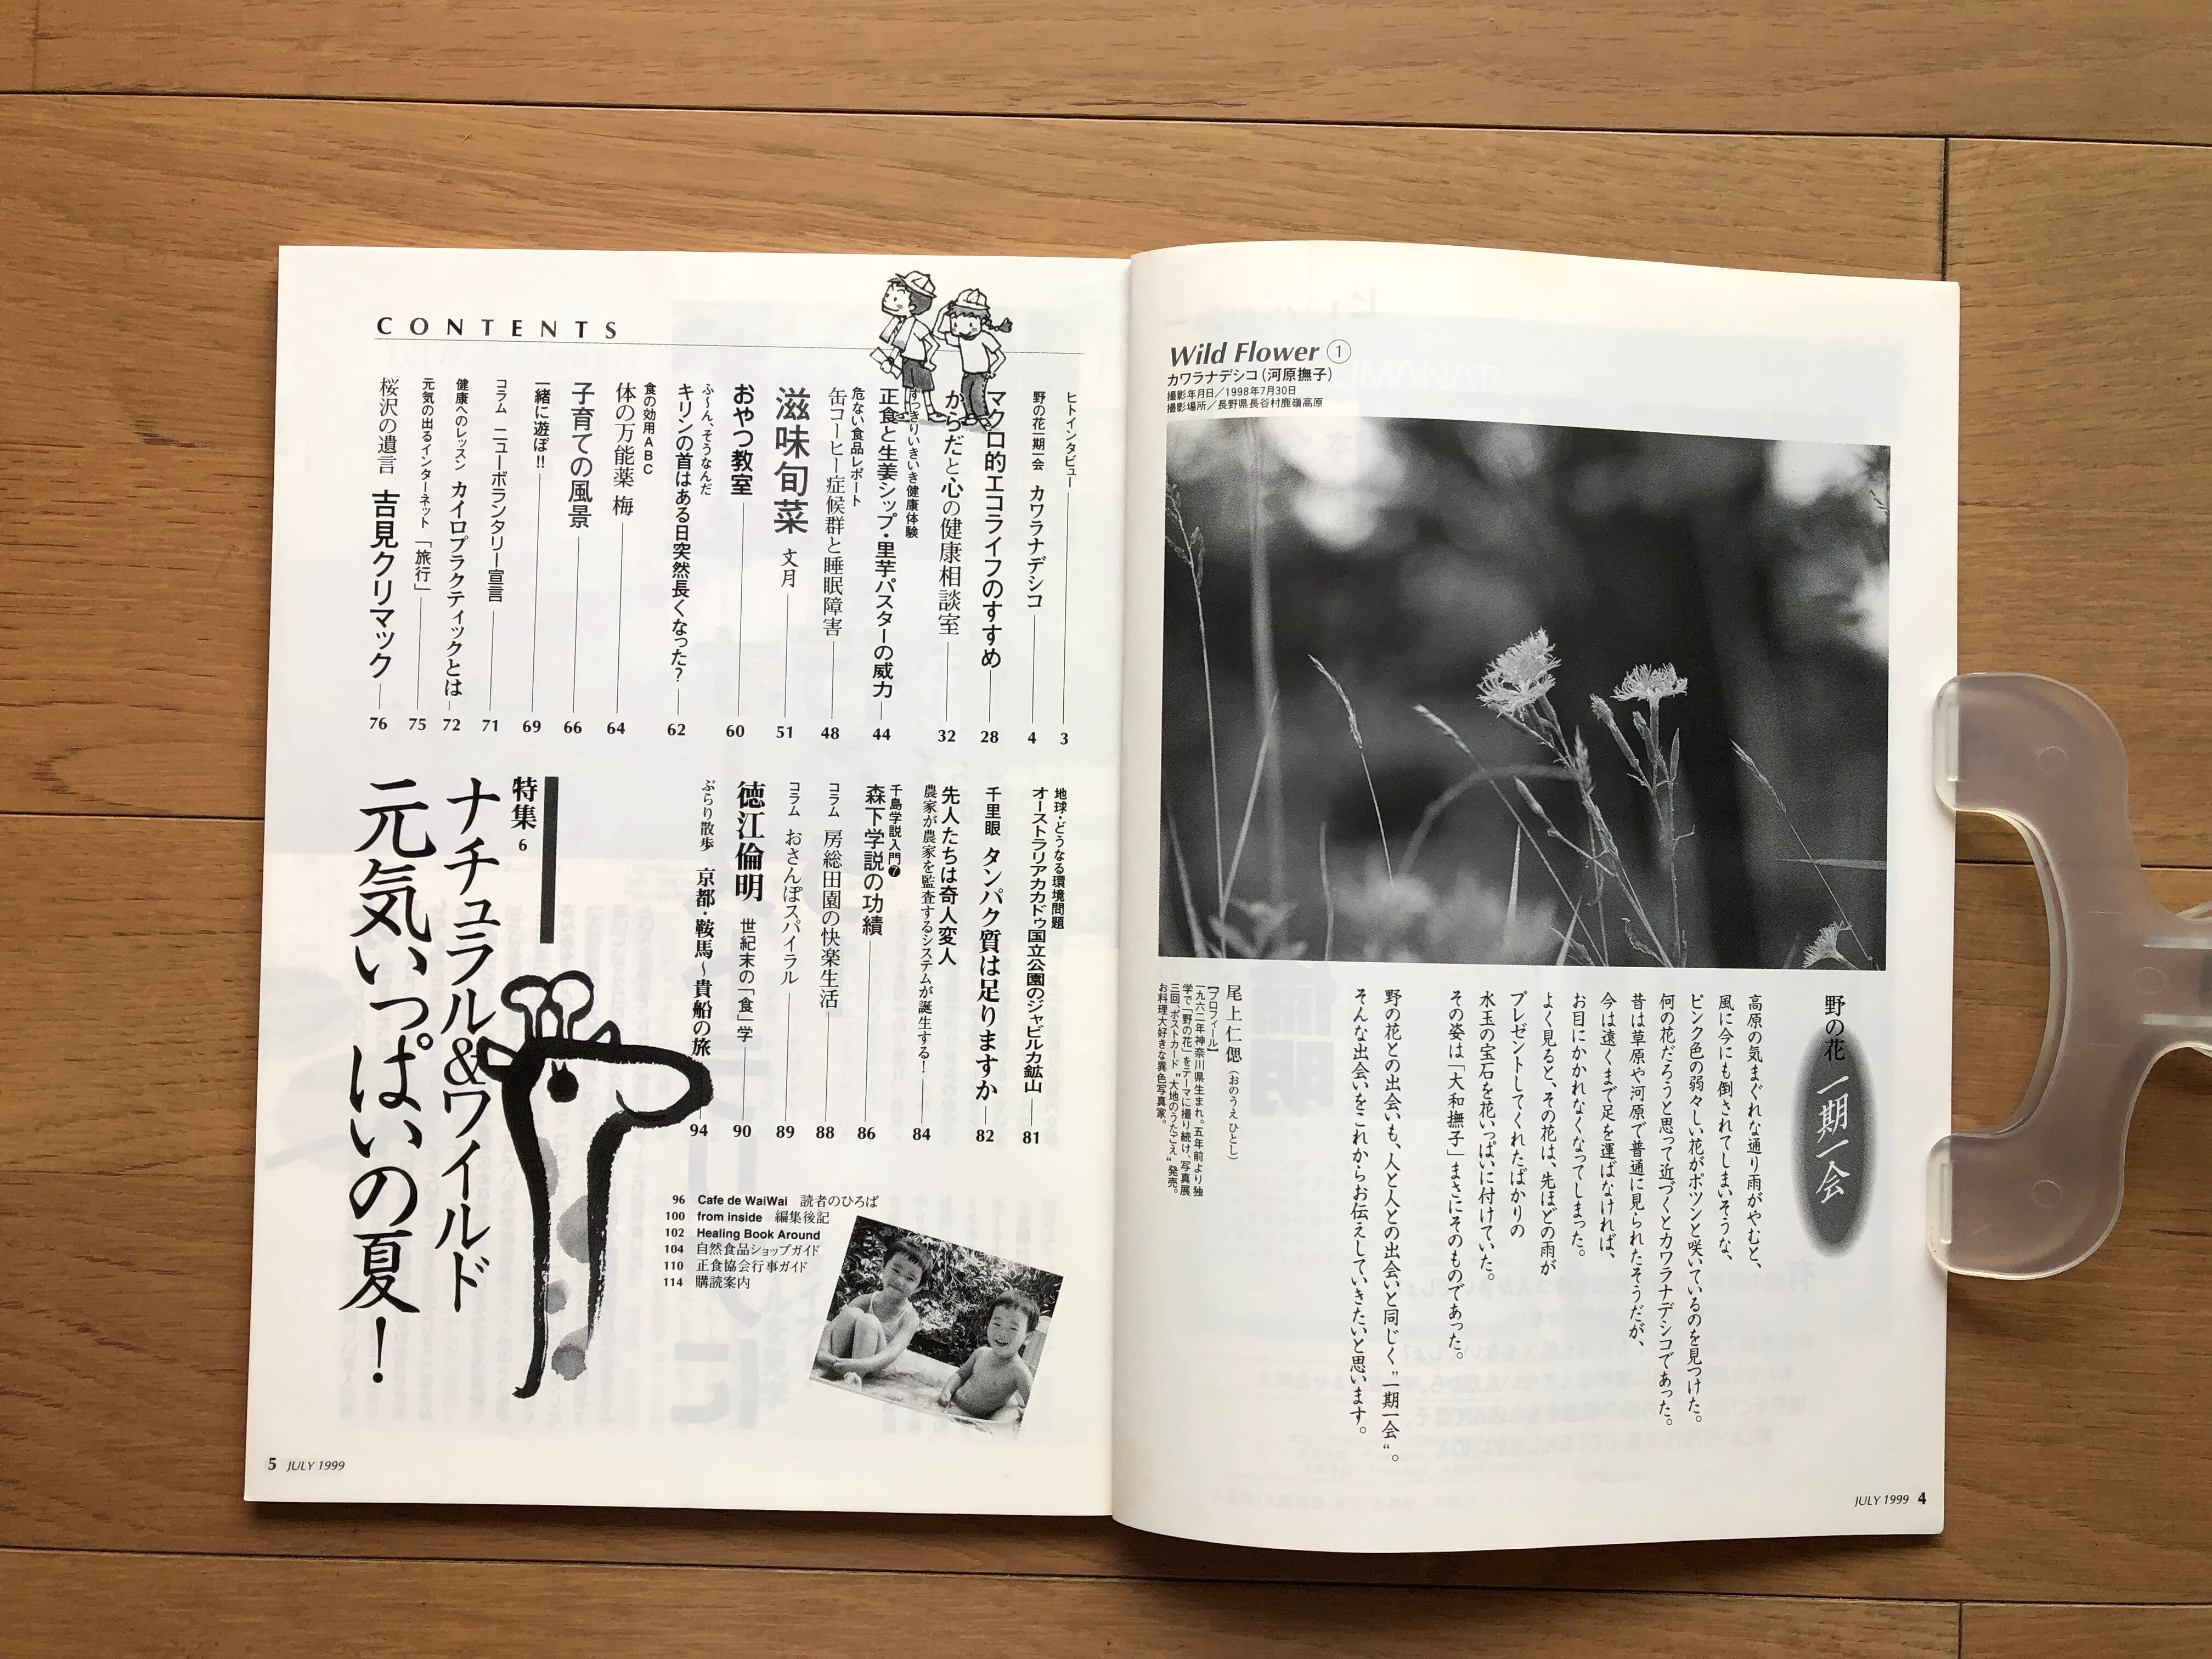 Wild Flower ①
カワラナデシコ（河原撫子）
撮影年月日／1998年7月30日
撮影場所／長野県長谷村鹿嶺高原
野の花 一期一会
高原の気まぐれな通り雨がやむと、
風に今にも倒されてしまいそうな、
ピンク色の弱々しい花がポツンと咲いているのを見つけた。
何の花だろうと思って近づくとカワラナデシコであった。
昔は草原や河原で普通に見られたそうだが、
今は遠くまで足を運ばなければ、
お目にかかれなくなってしまった。
よく見ると、その花は、先ほどの雨が
プレゼントしてくれたばかりの
水玉の宝石を花いっぱいに付けていた。
その姿は「大和撫子」まさにそのものであった。
野の花との出会いも、人と人との出会いと同じく〝一期一会〟。
そんな出会いをこれからお伝えしていきたいと思います。
尾上仁偲（おのうえひとし）
【プロフィール】
一九六二年神奈川県生まれ。五年前より独
学で「野の花」をテーマに撮り続け、写真展
三回、ポストカード〝大地のうたごえ〟発売。
お料理大好きな異色写真家。
JULY 1999 4
CONTENTS
ヒトインタビュー 3
野の花一期一会 カワラナデシコ 4
マクロ的エコライフのすすめ 28
からだと心の健康相談室 32
すっきりいきいき健康体験
正食と生姜シップ・里芋パスターの威力 44
危ない食品レポート
缶コーヒー症候群と睡眠障害 48
滋味旬菜 文月 51
おやつ教室 60
ふ〜ん、そうなんだ
キリンの首はある日突然長くなった？ 62
食の効用ABC
体の万能薬 梅 64
子育ての風景 66
一緒に遊ぼ!! 69
コラム ニューボランタリー宣言 71
健康へのレッスン カイロプラクティックとは 72
元気の出るインターネット 「旅行」 75
桜沢の遺言 吉見クリマック 76
地球・どうなる環境問題
オーストラリアカカドゥ国立公園のジャビルカ鉱山 81
千里眼 タンパク質は足りますか 82
先人たちは奇人変人
農家が農家を監査するシステムが誕生する！ 84
千島学説入門❼
森下学説の功績 86
コラム 房総田園の快楽生活 88
コラム おさんぽスパイラル 89
徳江倫明 世紀末の「食」学 90
ぶらり散歩 京都・鞍馬〜貴船の旅 94
特集 6
ナチュラル&ワイルド
元気いっぱいの夏！
96 Cafe de WaiWai 読者のひろば
100 from inside 編集後記
102 Healing Book Around
104 自然食品ショップガイド
110 正食協会行事ガイド
114 購読案内
5 JULY 1999